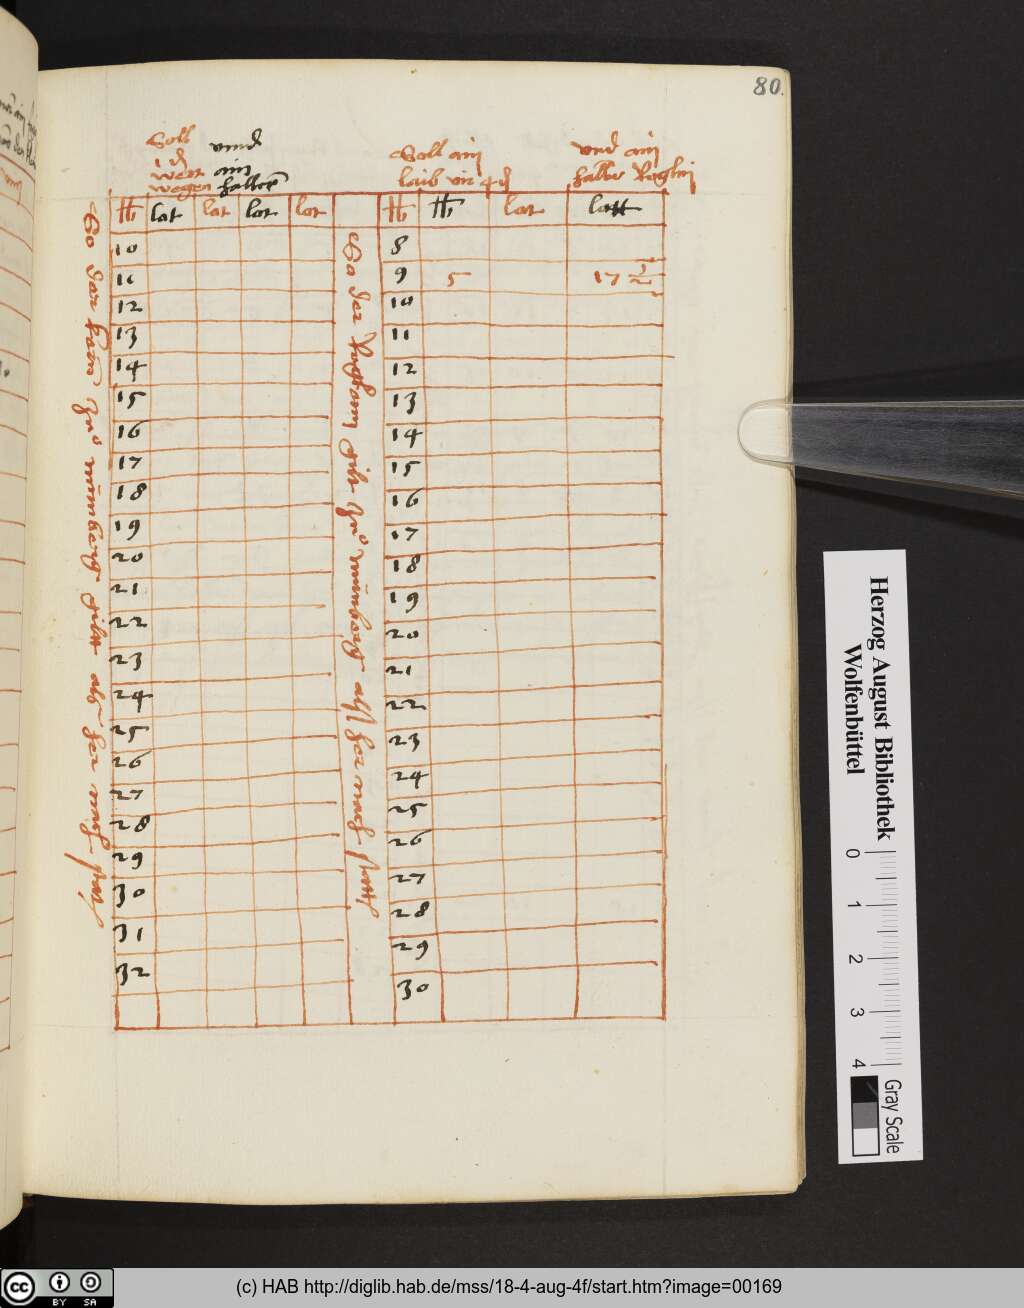 80.
Soll vnnd
1 ₰
wert ain
wegen halber
Soll ain
laib vm 4 ₰
vnd ain
halber Roglin
So der korn zuo nürnberg gilt als her nach stat
℔ lot lot lot lot
10
11
12
13
14
15
16
17
18
19
20
21
22
23
24
25
26
27
28
29
30
31
32
So der Rogkorn gilt zuo nürnberg als her nach statt
℔ ℔ lot lott
8
9 5 17 1/2
10
11
12
13
14
15
16
17
18
19
20
21
22
23
24
25
26
27
28
29
30
Herzog August Bibliothek
Wolfenbüttel
0 1 2 3 4
Gray Scale
cc BY SA
(c) HAB http://diglib.hab.de/mss/18-4-aug-4f/start.htm?image=00169